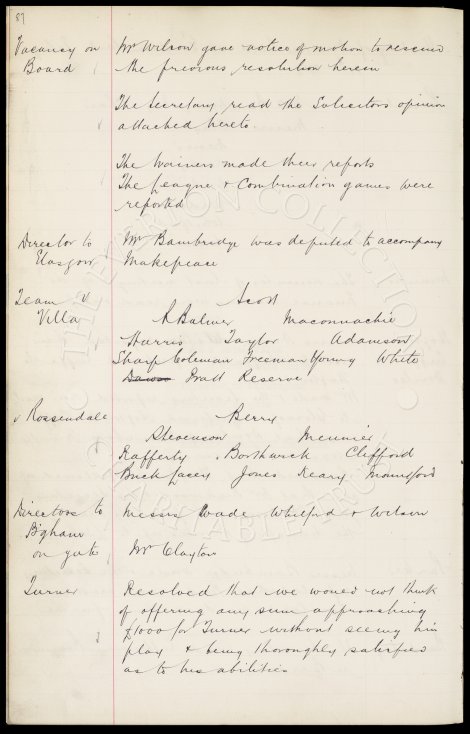 87
Vacancy on Mr Wilson gave notice of motion to rescind
Board the previous resolution herein
The Secretary read the Solicitors opinion
attached hereto.
The Trainers made their reports
The League & Combination games were
reported
Director to Mr Bainbridge was deputed to accompany
Glasgow Makepeace
Team v Scott
Villa R Balmer Maconnachie
Harris Taylor Adamson
Sharp Coleman Freeman Young White
Pratt Reserve
v Rossendale Berry
Stevenson Meunier
Rafferty Borthwick Clifford
Buck Lacey Jones Mountford
Directors to Messrs Wade, Whitford & Wilson
B'gham
on gate Mr Clayton
Turner Resolved that we would not think
of offering any sum approaching
£1000 for Turner without seeing him
play & being thoroughly satisfied
as to his abilities
THE EVERTON COLLECTION
CHARITABLE TRUST